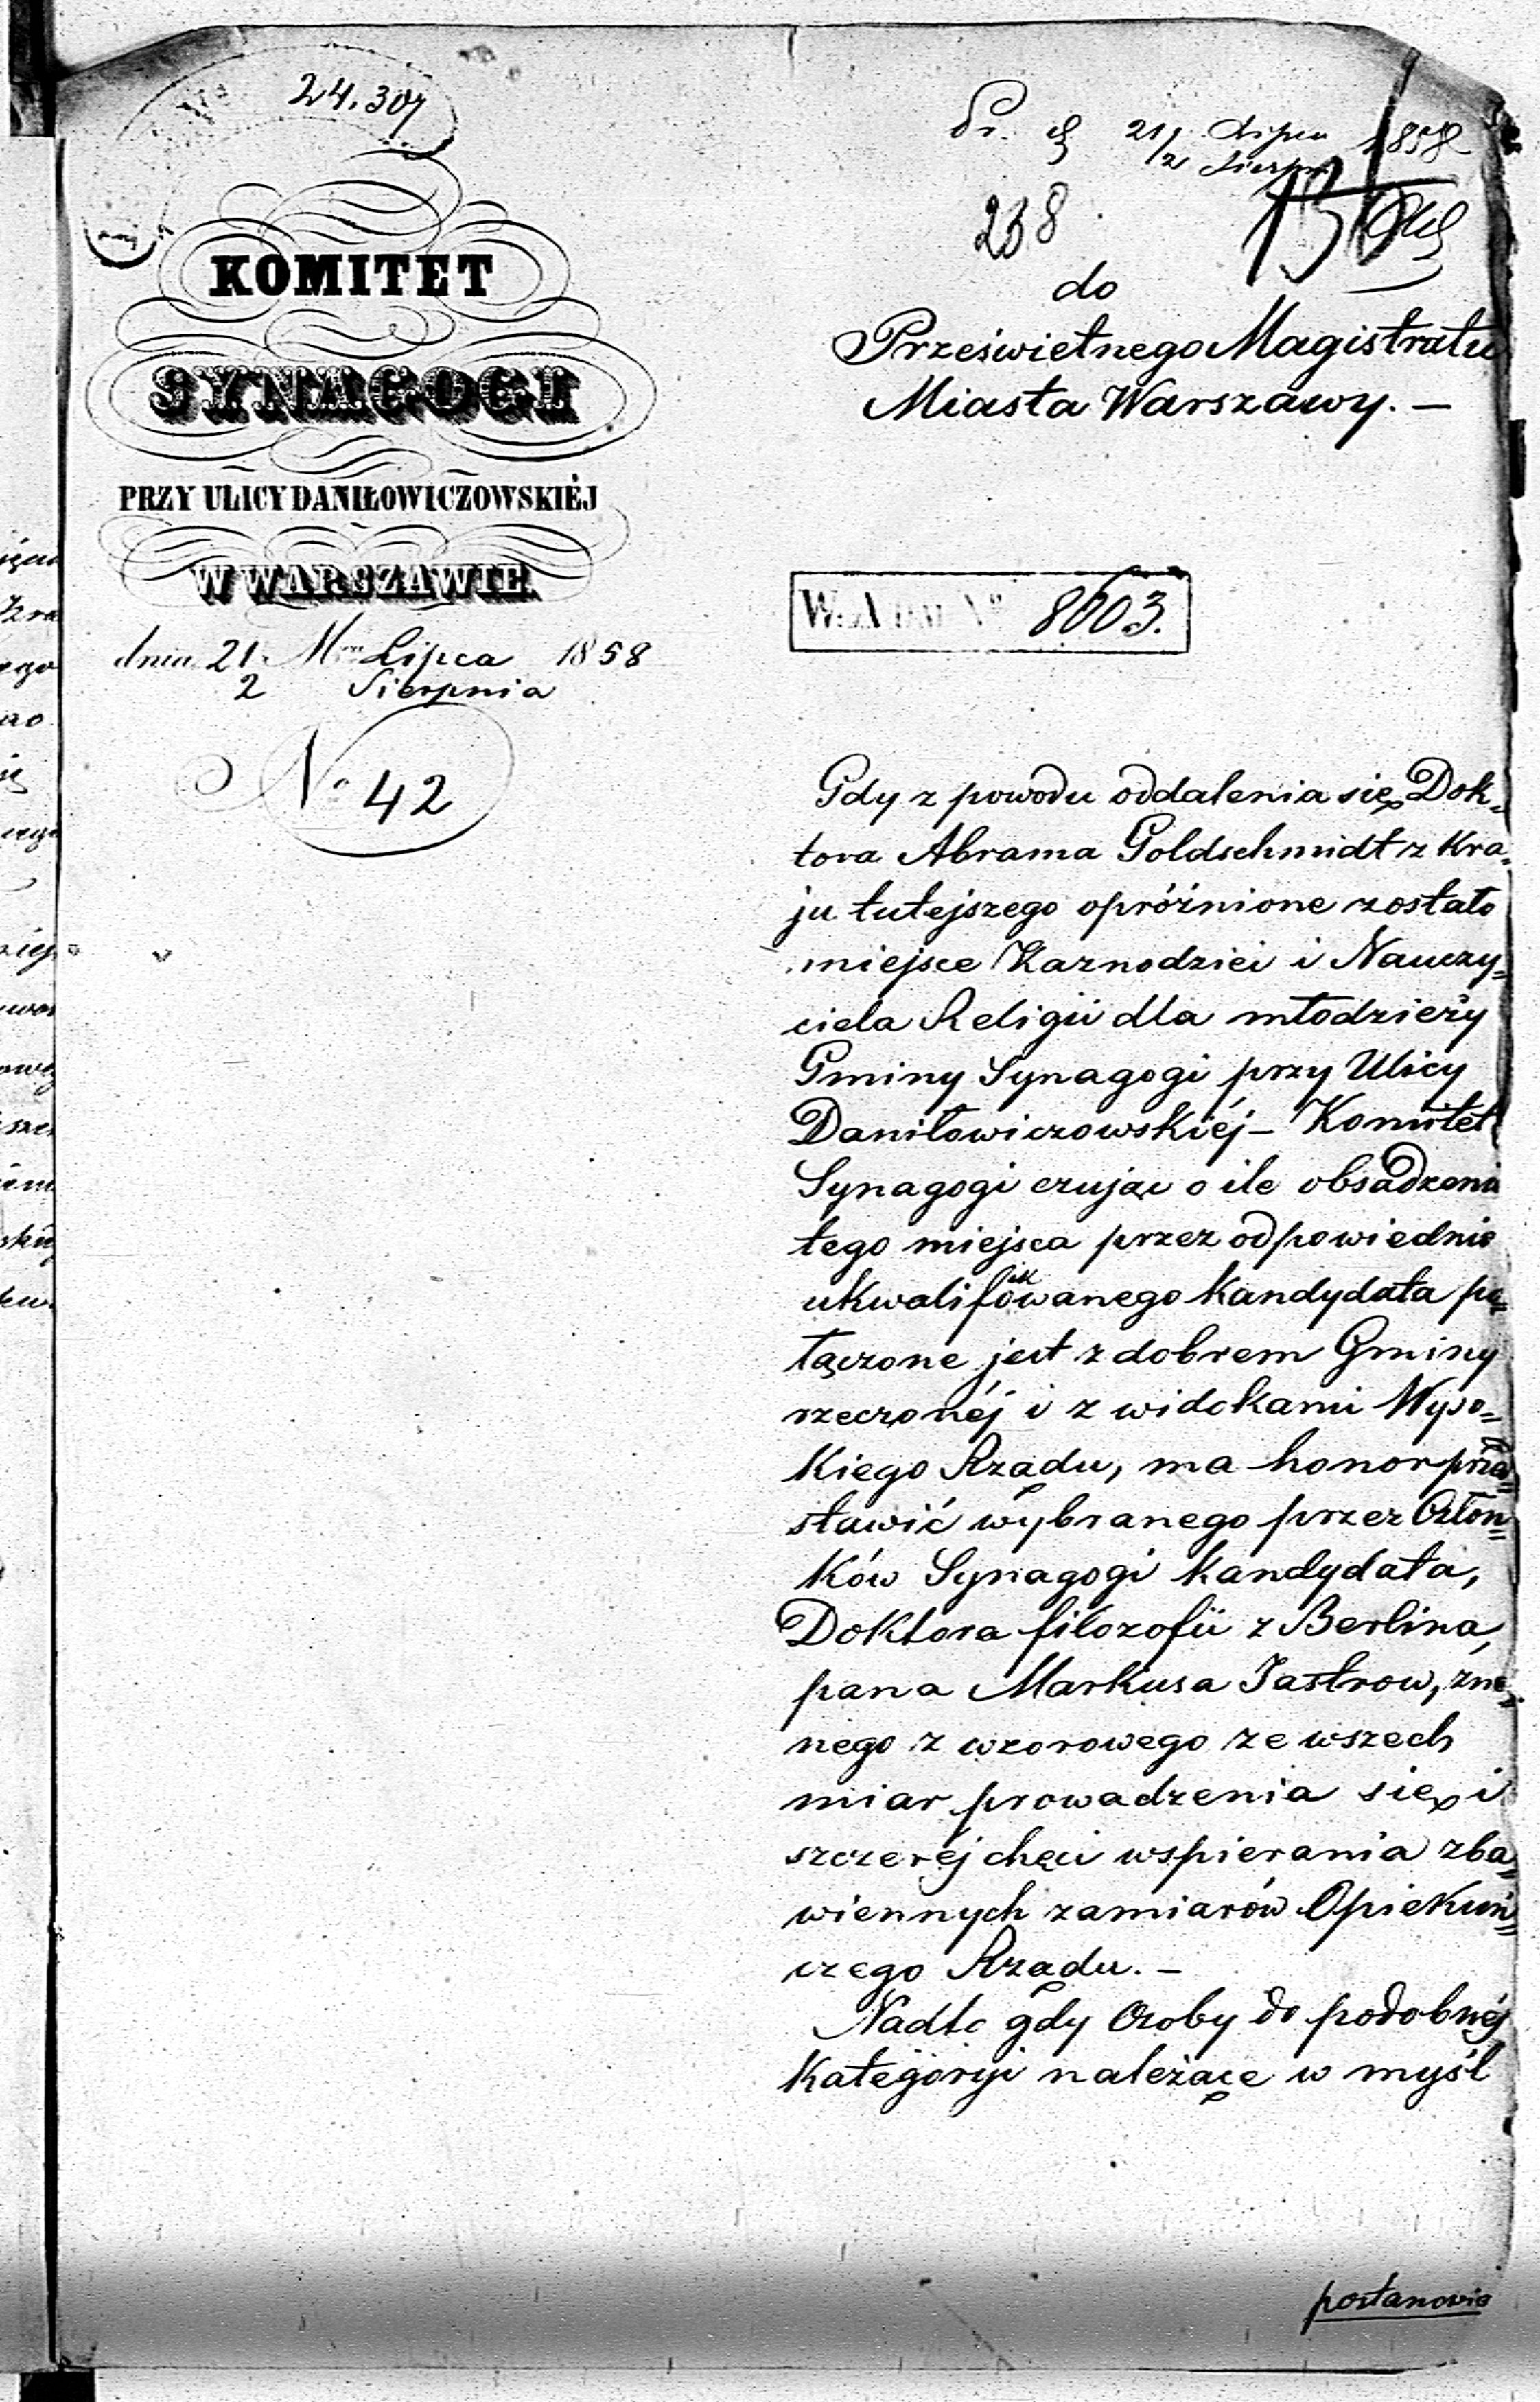 24.307
KOMITET
SYNAGOGI
PRZY ULICY DANIŁOWICZOWSKIÉJ
W WARSZAWIE.
dnia 21. Mca Lipca 1858
2 Sierpnia
No 42
Pr. d 21/2 Lipca 1858
Sierpn
238.
do
Prześwietnego Magistratu
Miasta Warszawy. —
W. ADM No 8003.
Gdy z powodu oddalenia się Dok„
tora Abrama Goldschmidt z Kra„
ju tutejszego opróźnione zostało
miejsce Kaznodziei i Nauczy„
ciela Religii dla młodzieży
Gminy Synagogi przy Ulicy
Daniłowiczowskiéj — Komitet
Synagogi czując o ile obsadzenie
tego miejsca przez odpowiednio
ukwalifikowanego kandydata po„
łączone jest z dobrem Gminy
rzeczonéj i z widokami Wyso„
kiego Rządu, ma honor przed„
stawić wybranego przez Człon„
ków Synagogi kandydata,
Doktora filozofii z Berlina,
pana Markusa Jastrow, zna„
nego z wzorowego ze wszech
miar prowadzenia się i
szczeréj chęci wspierania zba„
wiennych zamiarów Opiekuń„
czego Rządu. —
Nadto gdy Osoby do podobnéj
kategoryi należące w myśl
postanowie